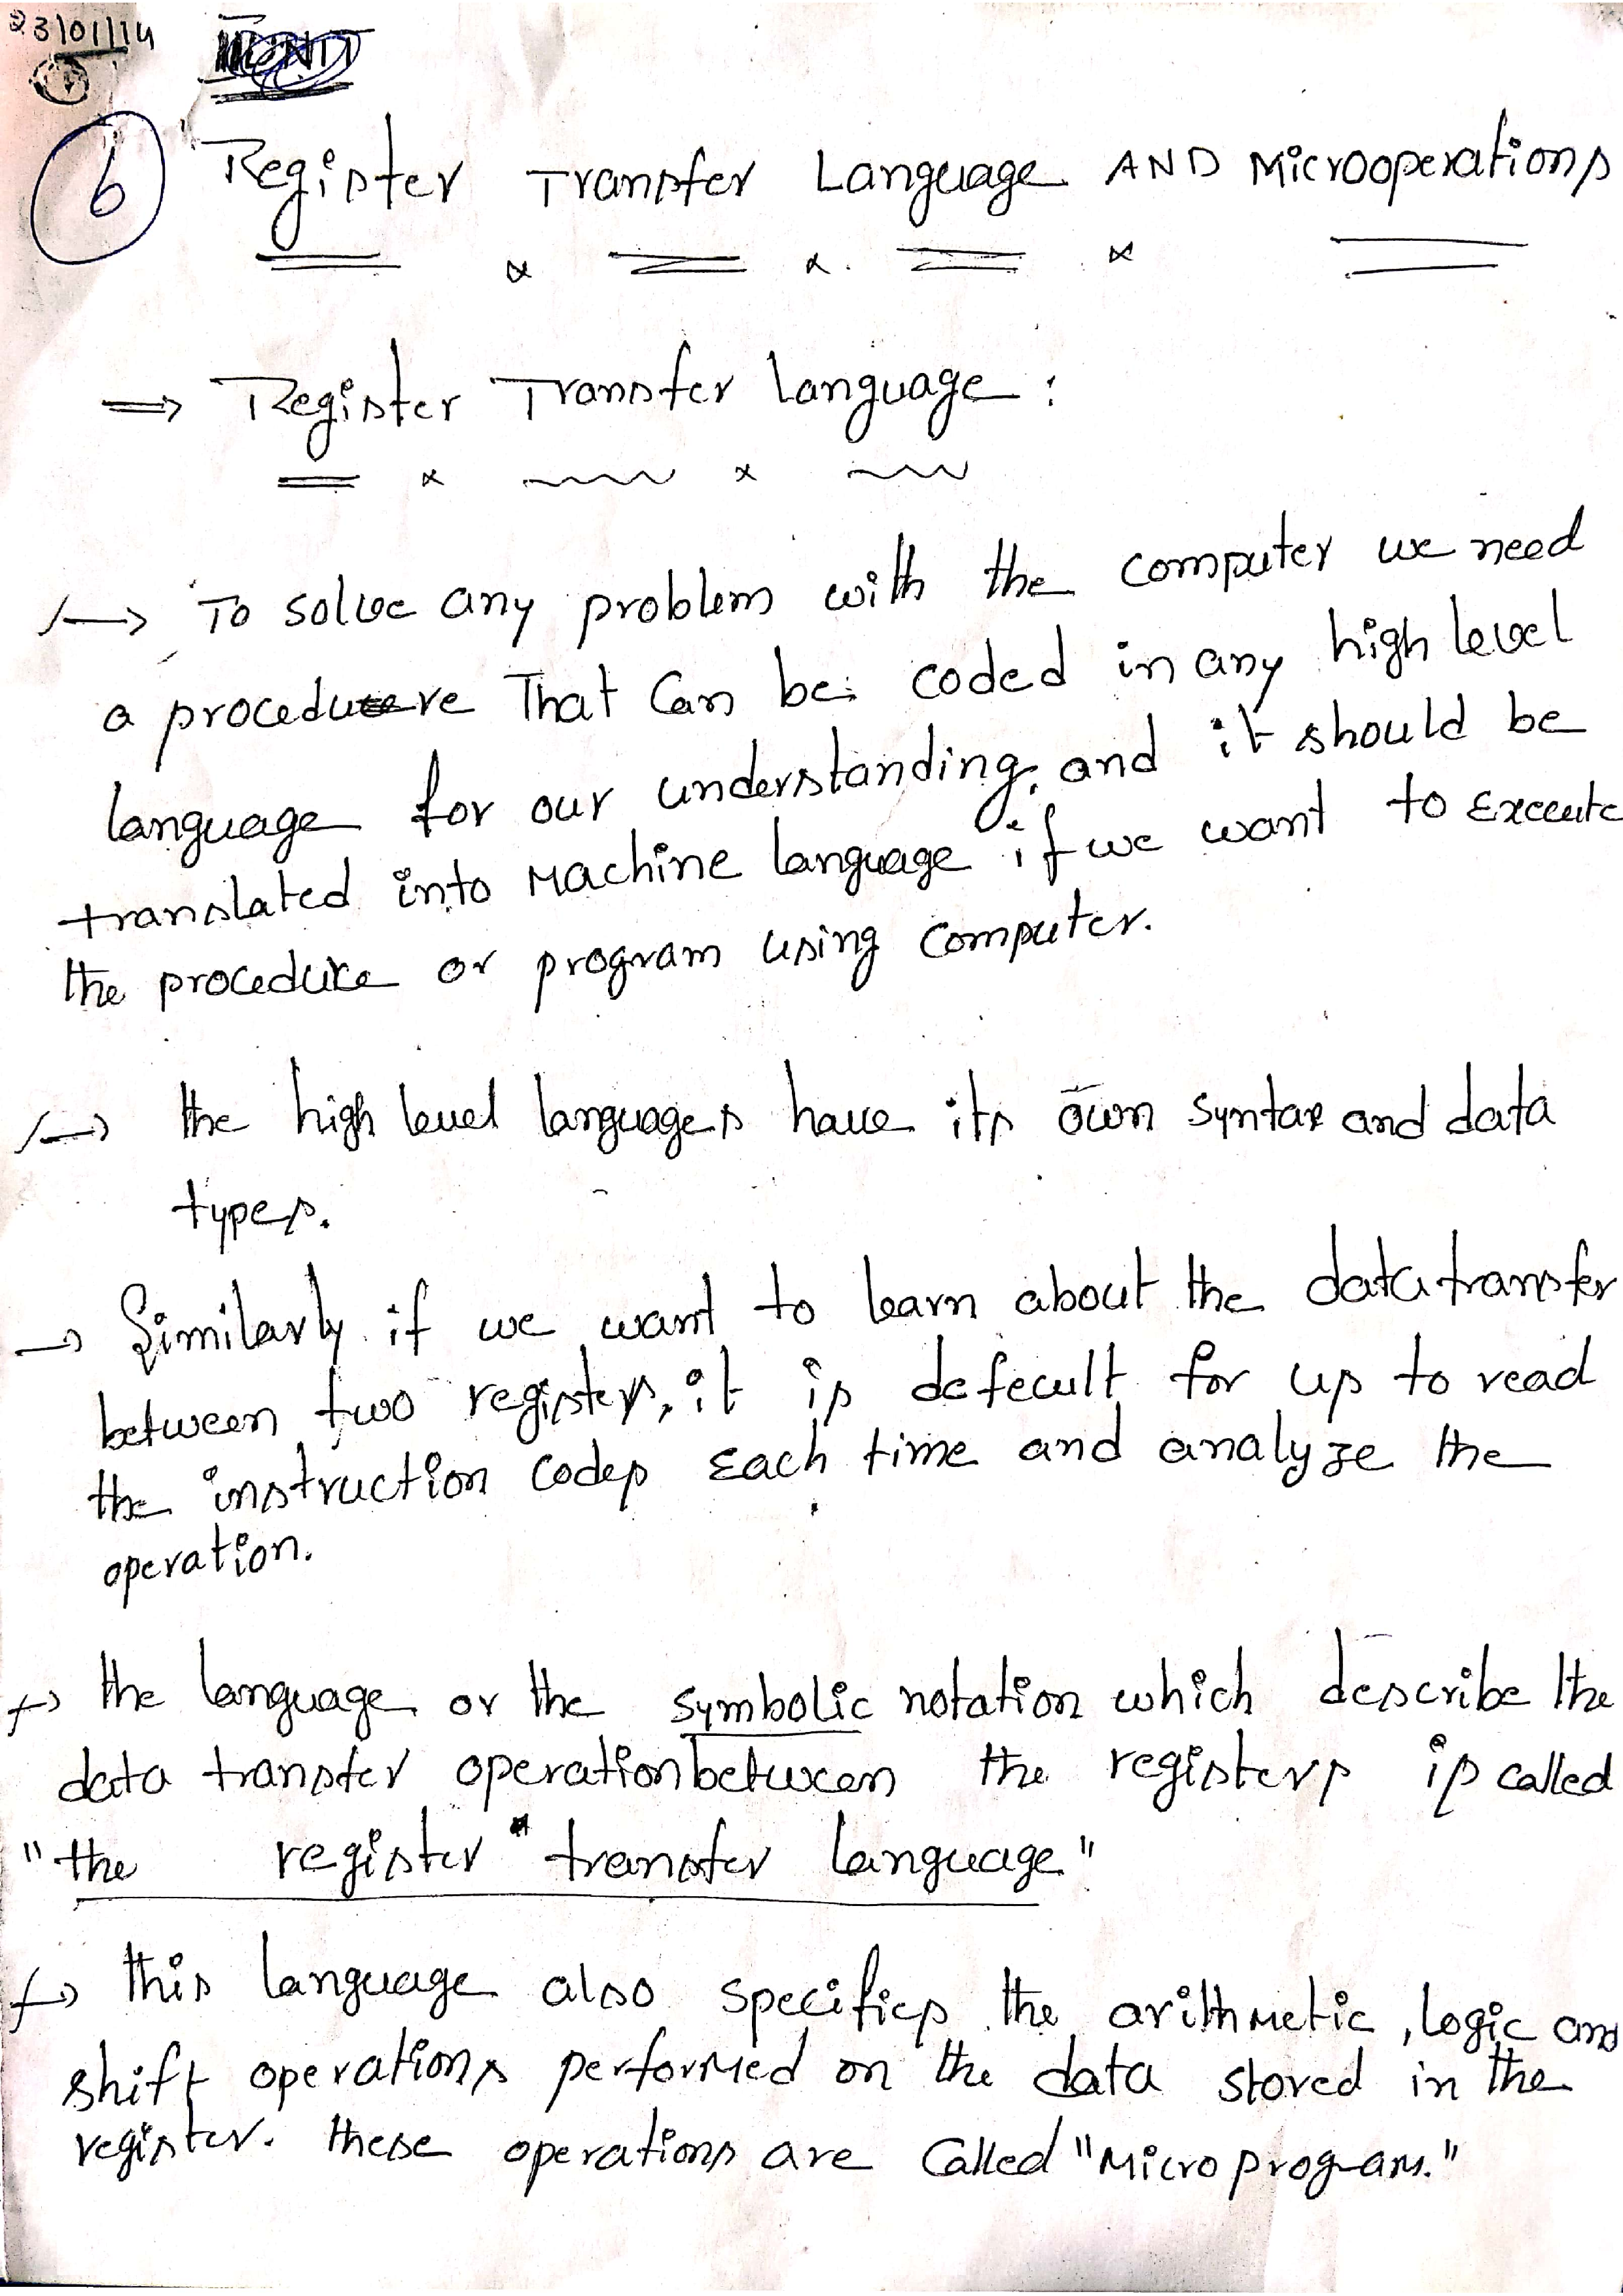 23/01/14
6 Register Transfer Language AND Microoperations
⇒ Register Transfer language :
→ To solve any problem with the computer we need
a procedure That Can be coded in any high level
language for our understanding, and it should be
translated into Machine language if we want to Execute
the procedure or program using computer.
→ the high level languages have its own syntax and data
types.
→ Similarly if we want to learn about the data transfer
between two registers, it is defecult for us to read
the instruction codes Each time and analyze the
operation.
→ the language or the symbolic notation which describe the
data transfer operation between the registers is called
"the register transfer language"
→ this language also specifies the arithmetic, logic and
shift operations performed on the data stored in the
register. these operations are Called "Micro program."